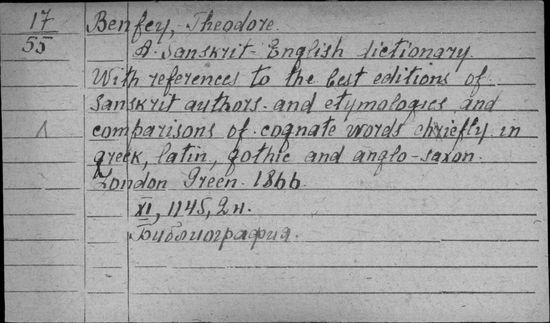 17
55
Benfey, Theodore.
A Sanskrit-English dictionary.
With references to the best editions of
Sanskrit authors and etymologies and
comparisons of cognate words chiefly in
greek, latin, gothic and anglo-saxon.
London Green. 1866.
XI, 1145, 2 н.
Библиография.